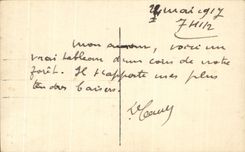 mai 1917
7H1/2
Mon amour, voici un
vrai tableau d'un coin de notre
forêt. Il t'apporte mes plus
tendres baisers.